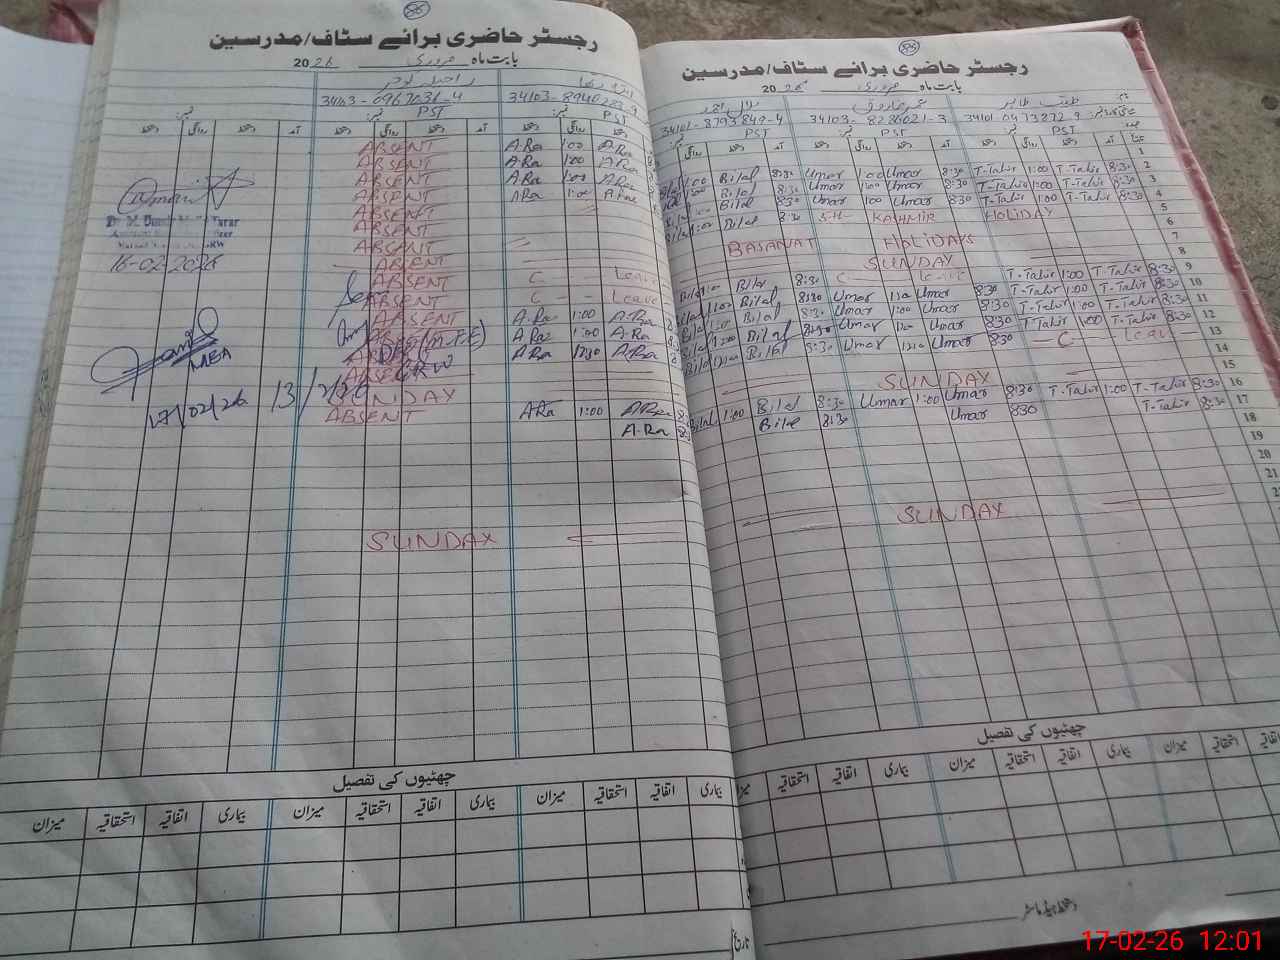 رجسٹر حاضری برائے سٹاف/مدرسین
بابت ماہ فروری 2026
34103-0967031-4
34103-8940283-9
PST
PST
آمد دستخط روانگی دستخط آمد دستخط روانگی دستخط
ABSENT A.Ra 1:00 A.Ra
ABSENT A.Ra 1:00 A.Ra
ABSENT A.Ra 1:00 A.Ra
ABSENT A.Ra 1:00 A.Ra
ABSENT
ABSENT
ABSENT
ABSENT C Leave
ABSENT C Leave
ABSENT A.Ra 1:00 A.Ra
A.Ra 1:00 A.Ra
A.Ra 12:30 A.Ra
SUNDAY
ABSENT A.Ra 1:00 A.Ra
A.Ra
SUNDAY
16-02-2026
MEA
17/02/26
13/2/26
چھٹیوں کی تفصیل
بیماری اتفاقیہ استحقاقیہ میزان بیماری اتفاقیہ استحقاقیہ میزان بیماری اتفاقیہ استحقاقیہ میزان
تاریخ
رجسٹر حاضری برائے سٹاف/مدرسین
بابت ماہ فروری 2026
طیب طاہر عمر فاروق بلال احمد
34101-8793849-4 34103-8286021-3 34101-0473872-9
PST PST PST
1
Bilal 1:00 Bilal 8:30 Umar 1:00 Umar 8:30 T-Tahir 1:00 T-Tahir 8:30 2
Bilal 1:00 Bilal 8:30 Umar 1:00 Umar 8:30 T-Tahir 1:00 T-Tahir 8:30 3
Bilal 1:00 Bilal 8:30 Umar 1:00 Umar 8:30 T-Tahir 1:00 T-Tahir 8:30 4
KASHMIR HOLIDAY 5
BASANAT HOLIDAYS 6
7
SUNDAY 8
Bilal 1:00 Bilal 8:30 C Leave T-Tahir 1:00 T-Tahir 8:30 9
Bilal 1:00 Bilal 8:30 Umar 1:00 Umar 8:30 T-Tahir 1:00 T-Tahir 8:30 10
Bilal 1:00 Bilal 8:30 Umar 1:00 Umar 8:30 T-Tahir 1:00 T-Tahir 8:30 11
Bilal 1:00 Bilal 8:30 Umar 1:00 Umar 8:30 T-Tahir 1:00 T-Tahir 8:30 12
Bilal 12:10 Bilal 8:30 Umar 12:10 Umar 8:30 C Leave 13
14
SUNDAY 15
Bilal 1:00 Bilal 8:30 Umar 1:00 Umar 8:30 T-Tahir 1:00 T-Tahir 8:30 16
Bilal 8:30 Umar 8:30 T-Tahir 8:30 17
18
19
20
21
SUNDAY
چھٹیوں کی تفصیل
اتفاقیہ استحقاقیہ میزان بیماری اتفاقیہ استحقاقیہ میزان بیماری اتفاقیہ استحقاقیہ میزان
دستخط ہیڈ ماسٹر
17-02-26 12:01